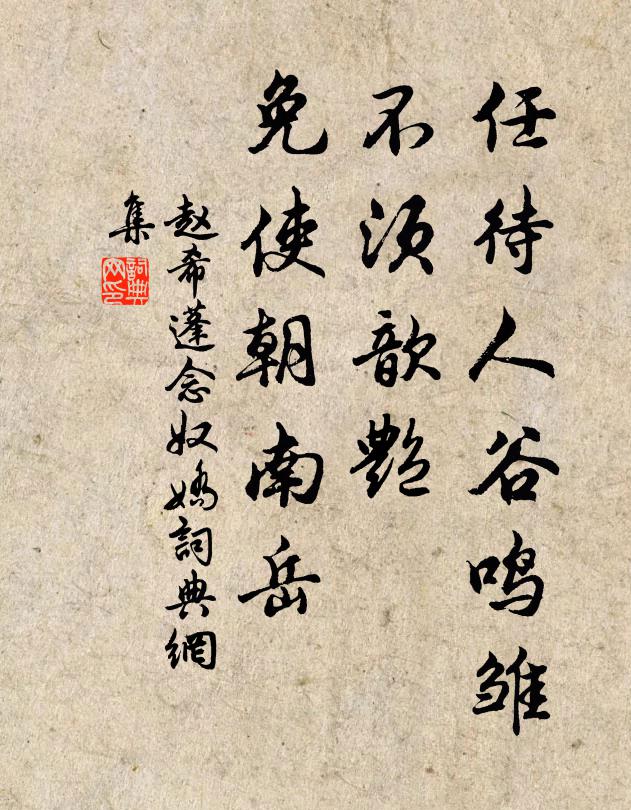 任待人谷鸣雏
不须歆艳
免使朝南岳
赵希蓬念奴娇詞典網
集
詞典
网印